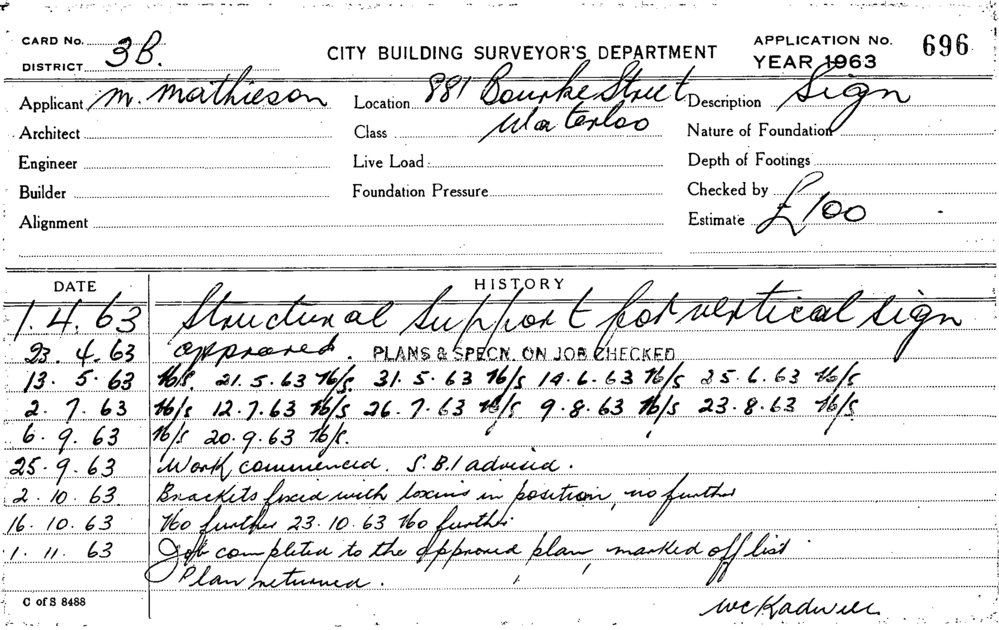 CARD No. 3B. CITY BUILDING SURVEYOR'S DEPARTMENT APPLICATION No. 696
DISTRICT YEAR 1963
Applicant M. Mathieson Location 881 Bourke Street Description Sign
Architect Class Waterloo Nature of Foundation
Engineer Live Load Depth of Footings
Builder Foundation Pressure Checked by
Alignment Estimate £100
DATE HISTORY
1.4.63 Structural Support for vertical sign
23.4.63 approved. PLANS & SPECN. ON JOB CHECKED
13.5.63 N/S. 21.5.63 N/S 31.5.63 N/S 14.6.63 N/S 25.6.63 N/S
2.7.63 N/S 12.7.63 N/S 26.7.63 N/S 9.8.63 N/S 23.8.63 N/S
6.9.63 N/S 20.9.63 N/S.
25.9.63 Work commenced. S.B.I advised.
2.10.63 Brackets fixed with loxins in position, no further
16.10.63 No further 23.10.63 No further
1.11.63 Job completed to the approved plan, marked off list
Plan returned.
C of S 8488